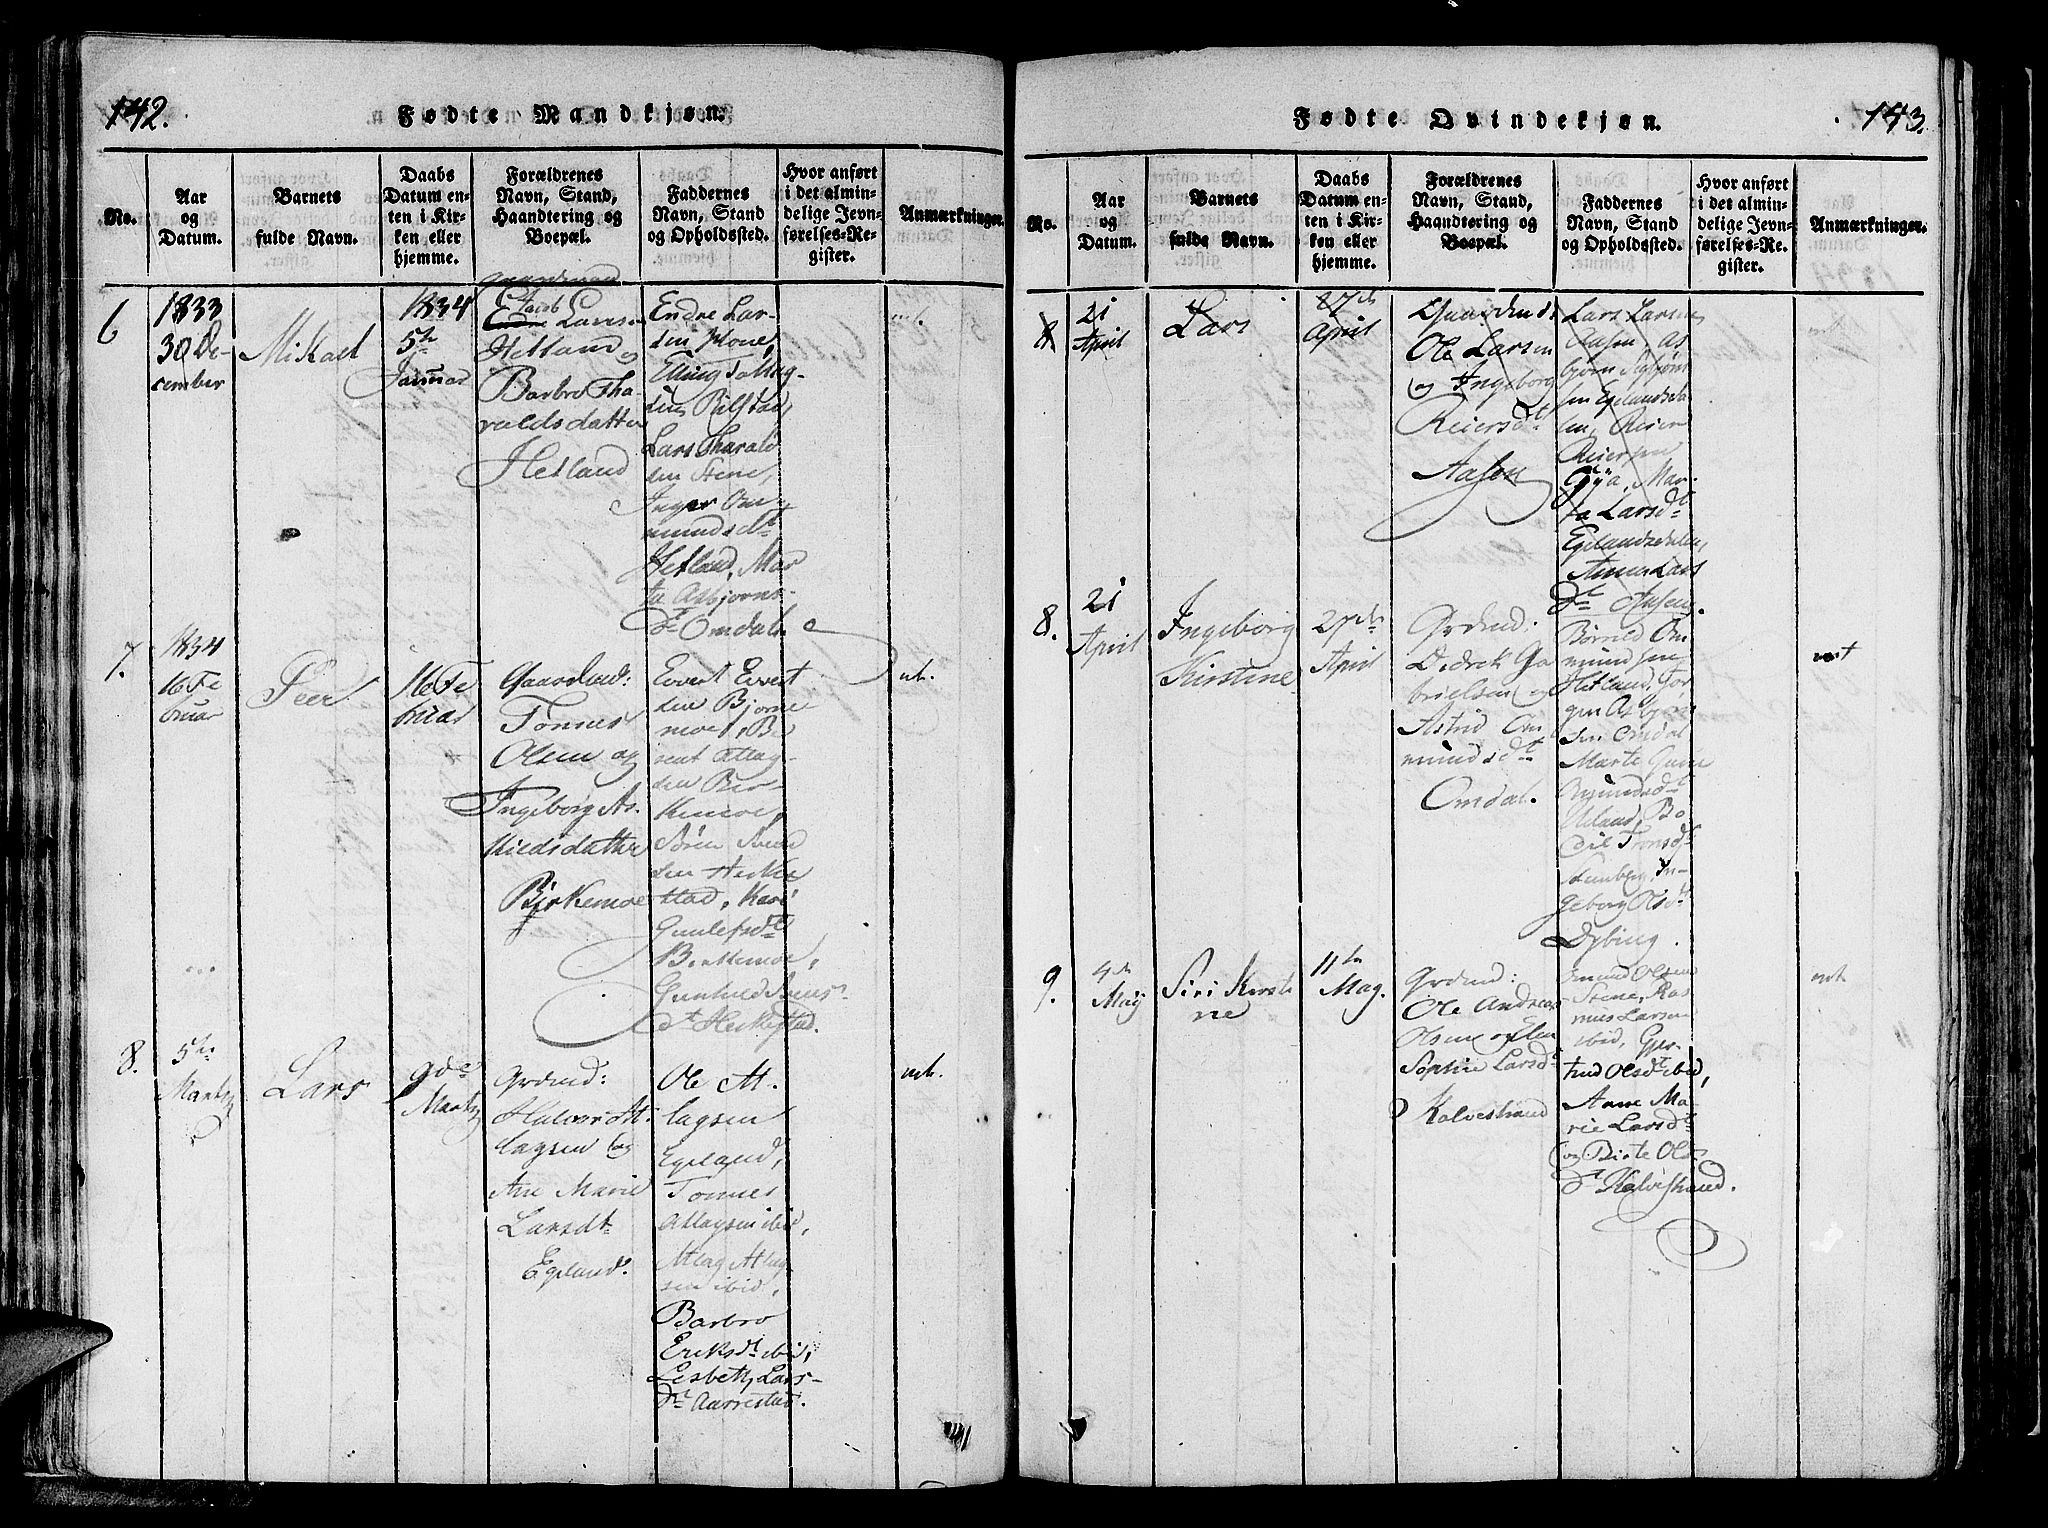 142.
Fødte Mandkjøn.
No.
Aar
og
Datum.
Barnets
fulde Navn.
Daabs
Datum en-
ten i Kir-
ken eller
hjemme.
Forældrenes
Navn, Stand,
Haandtering og
Boepæl.
Faddernes
Navn, Stand
og Opholdssted.
Hvor anført
i det almin-
delige Jevn-
førelses-Re-
gister.
Anmærkninger.
6
1833
30 De-
cember
Mikael
1834
5te
Januar
Jacob
Endre Lars
Hetland og
Barbro Tha-
raldsdatter
Hetland
Endre Lar-
sen Mone,
Elling
Lars Tharald
sen Stene,
Inger Om-
mundsdt
Hetland, Mar
ta Asbjørns-
dt Omdal.
7.
1834
16 Fe
bruar
Peer
16 Fe
bruar
Gaardmd:
Tønnes
Olsen og
Ingeborg As-
Birkemoe
Evert Evert
sen Bjørne
moe, B
sent Atlag-
sen Bir-
kemoe,
Søren Svend
sen Heske
stad, Kari
Gunlefsdt
Birkemoe,
Gunhild Svens-
dt Heskestad.
mt.
8.
5te
Martz
Lars
9de
Martz
Grdmd:
Halvor At-
lagsen og
Ane Marie
Larsdt
Egeland.
Ole At-
lagsen
Egeland,
Tønnes
Atlagsen ibid,
Atlag Atlag
sen ibid,
Barbro
Eriksdt ibid,
Lesbeth Lars-
dt Aarrestad.
mt.
143.
Fødte Qvindekjøn.
No.
Aar
og
Datum.
Barnets
fulde Navn.
Daabs
Datum en-
ten i Kir-
ken eller
hjemme.
Forældrenes
Navn, Stand,
Haandtering og
Boepæl.
Faddernes
Navn, Stand
og Opholdssted.
Hvor anført
i det almin-
delige Jevn-
førelses-Re-
gister.
Anmærkninger.
8
21
April
Lars
27de
April
Gaardmd:
Ole Larsen
og Ingeborg
Reiersdt
Aasen
Lars Larsen
Aasen, As
bjørn Sigbjørn
sen Egelandsda
len, Reier
Reiersen
Gya, Mar-
ta Larsdt
Egelandsdalen,
Anna Lars
dt Aasen.
8.
21
April
Ingeborg
Kirstine
27de
April
Grdmd:
Didrek Ga
brielsen og
Astrid Om
mundsdt
Omdal.
Børrild Om
mundsen
Hetland, Tor-
gen Asbjørn
sen Omdal
Marte Gur
Omundsdt
Bo
dil Tronsdt
Stenberg, In-
geborg Olsdt
Dybing.
mt
9.
4de
May
Siri Kirsti
ne
11te
May.
Grdmd:
Ole Andreas
Olsen og Elen
Sophie Larsdt
Kalvestrand
Olsen
Stene, Ras
mus Larsen
ibid, Gjer-
trud Olsdt ibid,
Anne Ma-
rie Larsdt
og Birte Ols
dt Kalvestrand.
mt